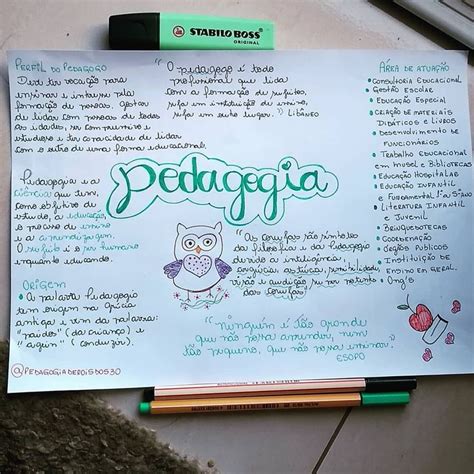 STABILO BOSS
ORIGINAL
PERFIL DO PEDAGOGO
Deve ter vocação para
ensinar e interesse pela
formação de pessoas. Gostar
de lidar com pessoas de todas
as idades, ser comprensivo e
estudioso e ter capacidade de lidar
com o outro de uma forma educacional.
"O pedagogo é todo
profissional que lida
com a formação de sujeitos,
seja em instituição de ensino,
seja em outro lugar.") LIBÂNEO
ÁREA DE ATUAÇÃO
• CONSULTORIA EDUCACIONAL
• GESTÃO ESCOLAR
• EDUCAÇÃO ESPECIAL
• CRIAÇÃO DE MATERIAIS
DIDÁTICOS E LIVROS
• DESENVOLVIMENTO DE
FUNCIONÁRIOS
• TRABALHO EDUCACIONAL
EM MUSEU E BIBLIOTECAS
• EDUCAÇÃO HOSPITALAR
• EDUCAÇÃO INFANTIL
E FUNDAMENTAL 1ª a 5ª
• LITERATURA INFANTIL
E JUVENIL
• BRINQUEDOTECAS
• COORDENAÇÃO
• ORGÃOS PÚBLICOS
• INSTITUIÇÃO DE
ENSINO EM GERAL.
• ONG's
pedagogia
Pedagogia é a
ciência que tem,
como objetivo de
estudo, a educação,
o processo de ensino
e a aprendizagem.
O sujeito é o ser humano
enquanto educando.
"As corujas são símbolos
da filosofia e da pedagogia
devido a inteligência,
astúcia, sensibilidade,
visão e audição
das corujas"
ORIGEM
• A palavra Pedagogia
tem origem na grécia
antiga e vem da palavras:
"paidos" (da criança) e
"agein" (conduzir).
"ninguém é tão grande
que não possa aprender, nem
tão pequeno, que não possa ensinar."
ESOPO
@PEDAGOGIADEPOISDOS30